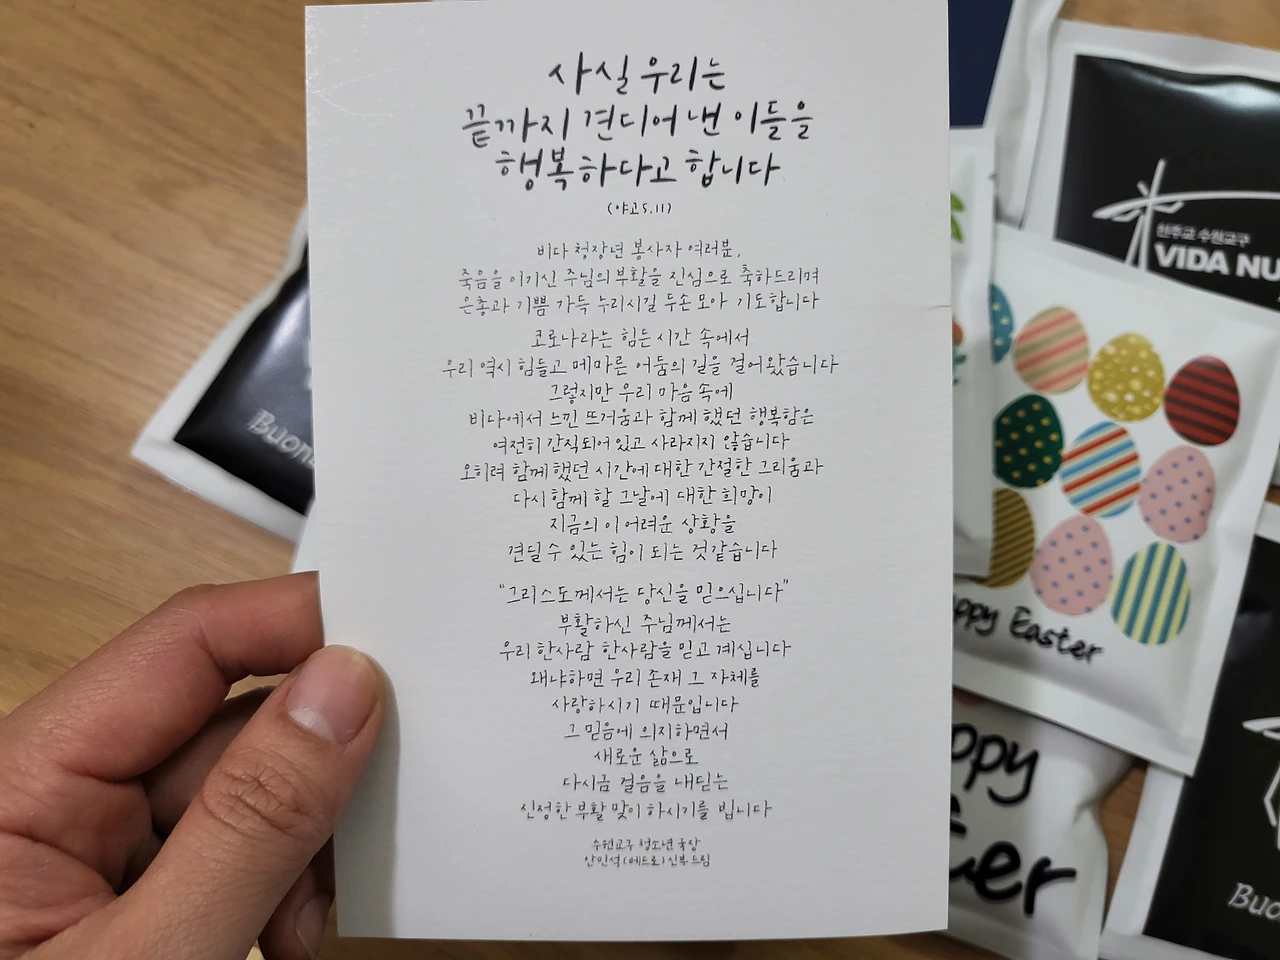 사실 우리는
끝까지 견디어 낸 이들을
행복하다고 합니다
(야고5,11)
비다 청장년 봉사자 여러분,
죽음을 이기신 주님의 부활을 진심으로 축하드리며
은총과 기쁨 가득 누리시길 두손 모아 기도합니다
코로나라는 힘든 시간 속에서
우리 역시 힘들고 메마른 어둠의 길을 걸어왔습니다
그렇지만 우리 마음 속에
비다에서 느낀 뜨거움과 함께 했던 행복함은
여전히 간직되어 있고 사라지지 않습니다
오히려 함께 했던 시간에 대한 간절한 그리움과
다시 함께 할 그날에 대한 희망이
지금의 이 어려운 상황을
견딜 수 있는 힘이 되는 것같습니다
"그리스도께서는 당신을 믿으십니다"
부활하신 주님께서는
우리 한사람 한사람을 믿고 계십니다
왜냐하면 우리 존재 그 자체를
사랑하시기 때문입니다
그 믿음에 의지하면서
새로운 삶으로
다시금 걸음을 내딛는
신정한 부활 맞이 하시기를 빕니다
수원교구 청소년 국장
신부 드림
천주교 수원교구
VIDA NU
Happy Easter
ppy
ter
Buon
Buo